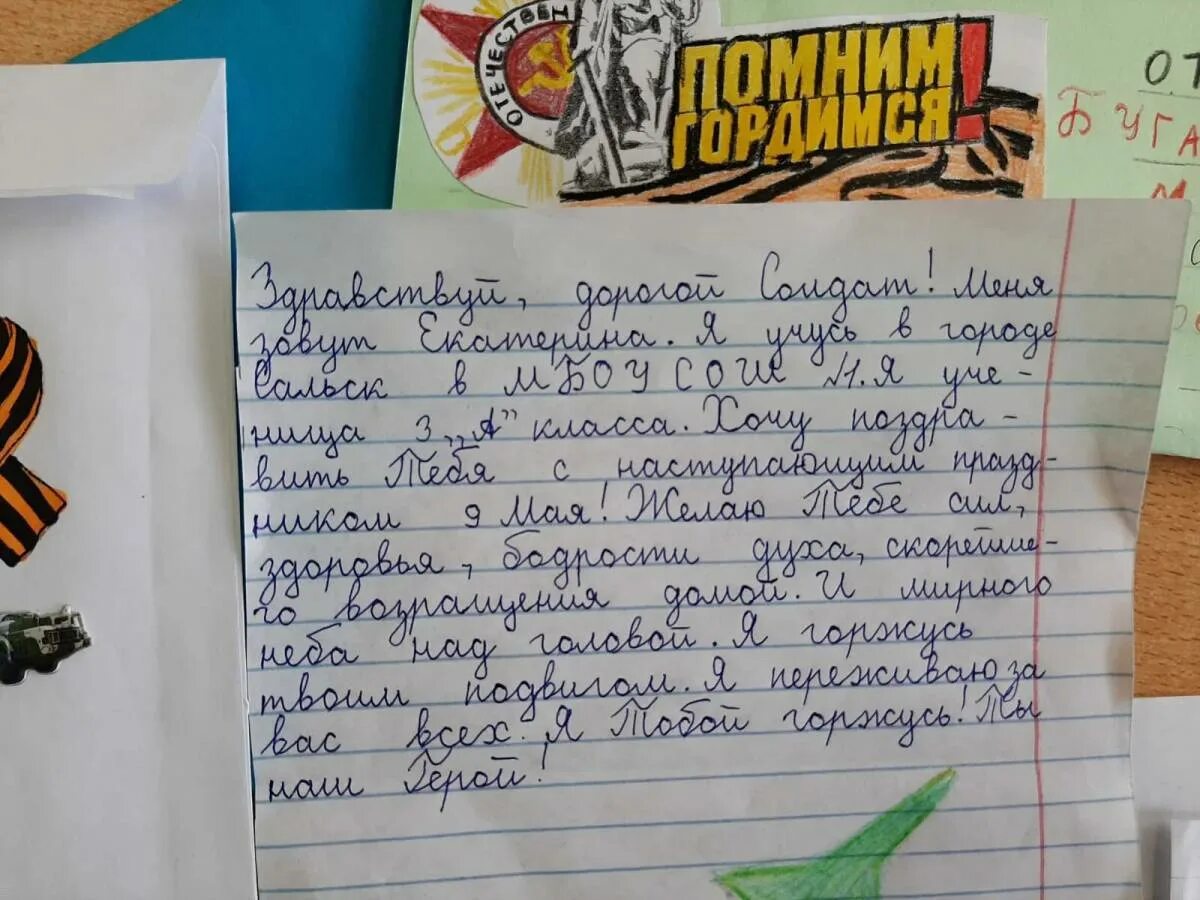 ОТЕЧЕСТВЕН
ПОМНИМ
ГОРДИМСЯ!
БУГА
Здравствуй, дорогой Солдат! Меня
зовут Екатерина. Я учусь в городе
Сальск в МБОУ СОШ №1. Я уче-
ница 3 „А” класса. Хочу поздра-
вить Тебя с наступающим празд-
ником 9 Мая! Желаю Тебе сил,
здоровья, бодрости духа, скорейше-
го возращения домой. И мирного
неба над головой. Я горжусь
твоим подвигом. Я переживаю за
вас всех. Я Тобой горжусь! Ты
наш Герой!